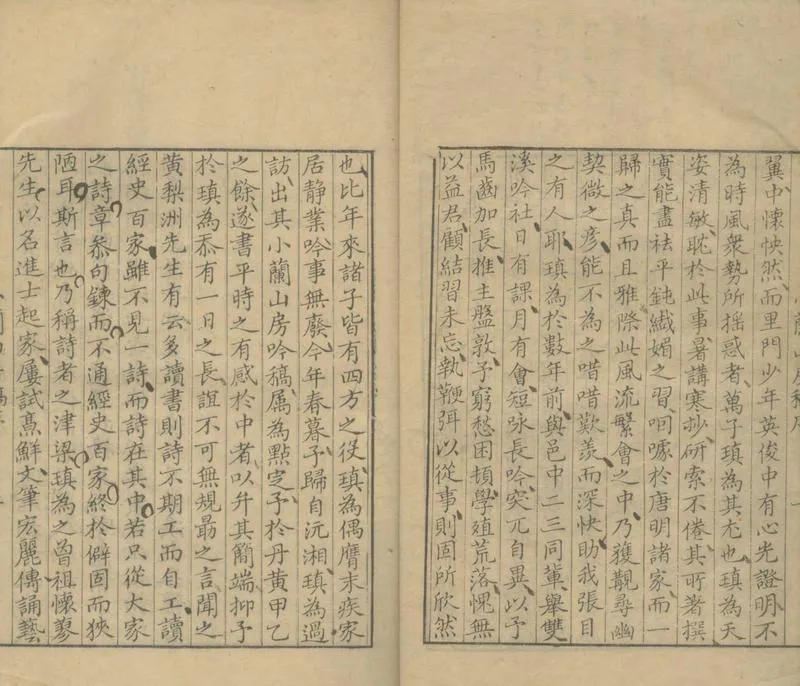 翼中懷怏然而里門少年英俊中有心光證明不
為時風衆勢所揺惑者萬子瑱為其尤也瑱為天
姿清敏耽於此事暑講寒抄研索不倦其所著撰
實能盡祛平鈍纎媚之習噱於唐明諸家而一
歸之真而且雅際此風流繁會之中乃獲覯尋幽
契微之彥能不為之唶唶歎羨而深快助我張目
之有人耶瑱為於數年前與邑中二三同軰舉雙
溪吟社日有課月有會短咏長吟突兀自異以予
馬齒加長推主盤敦予窮愁困頓學殖荒落愧無
以益君顧結習未忘執鞭弭以從事則固所欣然
也比年來諸子皆有四方之役瑱為偶膺末疾家
居静業吟事無廢今年春暮予歸自沅湘瑱為過
訪出其小蘭山房吟稿属為點定予於丹黄甲乙
之餘遂書平時之有感於中者以弁其簡端抑予
於瑱為忝有一日之長誼不可無規朂之言聞之
黄梨洲先生有云多讀書則詩不期工而自工讀
經史百家雖不見一詩而詩在其中若只從大家
之詩章叅句鍊而不通經史百家終於僻固而狹
陋耳斯言也乃稱詩者之津梁瑱為之曾祖懷蓼
先生以名進士起家屢試髙鮮文筆宏麗傳誦藝